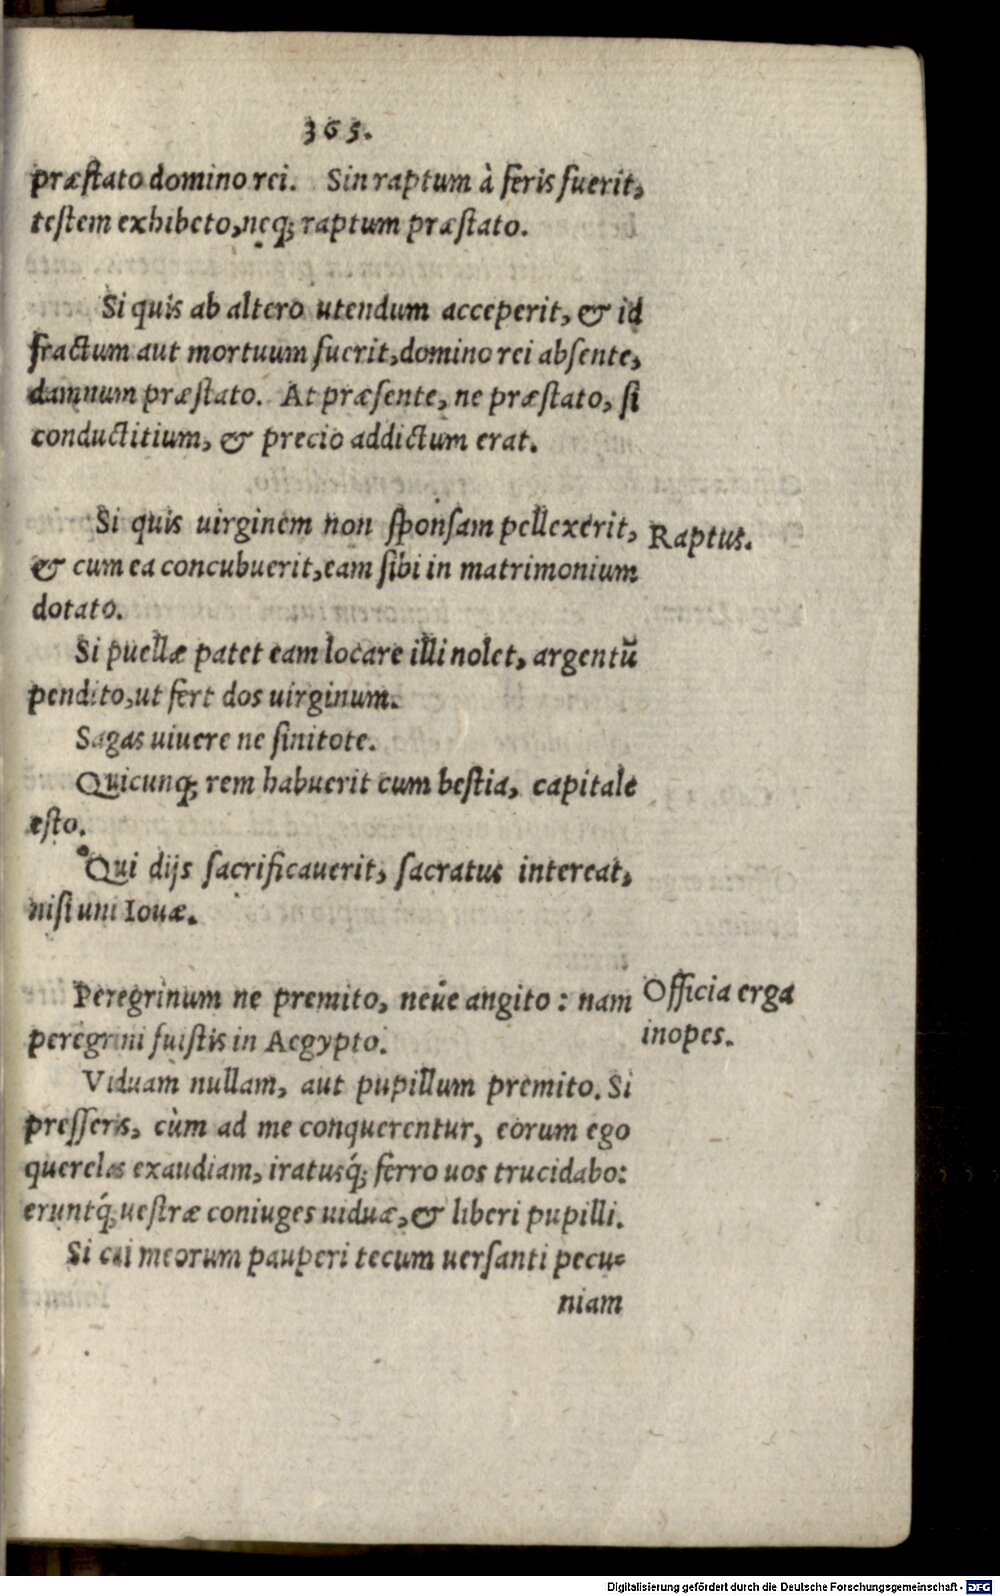 365.
præstato domino rei. Sin raptum à feris fuerit,
testem exhibeto, neq; raptum præstato.
Si quis ab altero utendum acceperit, & id
fractum aut mortuum fuerit, domino rei absente,
damnum præstato. At præsente, ne præstato, si
conductitium, & precio addictum erat.
Si quis uirginem non sponsam pellexerit,
Raptus.
& cum ea concubuerit, eam sibi in matrimonium
dotato.
Si puellæ patet eam locare illi nolet, argentū
pendito, ut fert dos uirginum.
Sagas uiuere ne sinitote.
Quicunq; rem habuerit cum bestia, capitale
esto.
Qui dijs sacrificauerit, sacratus intereat,
nisi uni Iouæ.
Peregrinum ne premito, neúe angito: nam
Officia erga
inopes.
peregrini fuistis in Aegypto.
Viduam nullam, aut pupillum premito. Si
presseris, cùm ad me conquerentur, eorum ego
querelas exaudiam, iratusq́; ferro uos trucidabo:
eruntq́; uestræ coniuges uiduæ, & liberi pupilli.
Si cui meorum pauperi tecum uersanti pecu-
niam
Digitalisierung gefördert durch die Deutsche Forschungsgemeinschaft - DFG